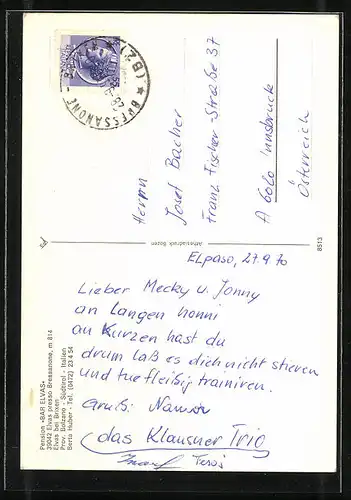 BRESSANONE
(BZ)
Herrn
Josef Bacher
Franz Fischer-Straße 37
A 6020 Innsbruck
Österreich
8513
Athesiadruck Bozen
ELpaso, 27.9.70
Lieber Mecky u. Jonny
an Langen honni
an Kurzen hast du
drum laß es dich nicht stieren
und tue fleißig trainiren.
Gruß:
das Klausner Trio
Pension »BAR ELVAS«
39042 Elvas presso Bressanone, m 814
Elvas bei Brixen
Prov. Bolzano - Südtirol - Italien
Berta Huber - Tel. (0472) 23 4 54